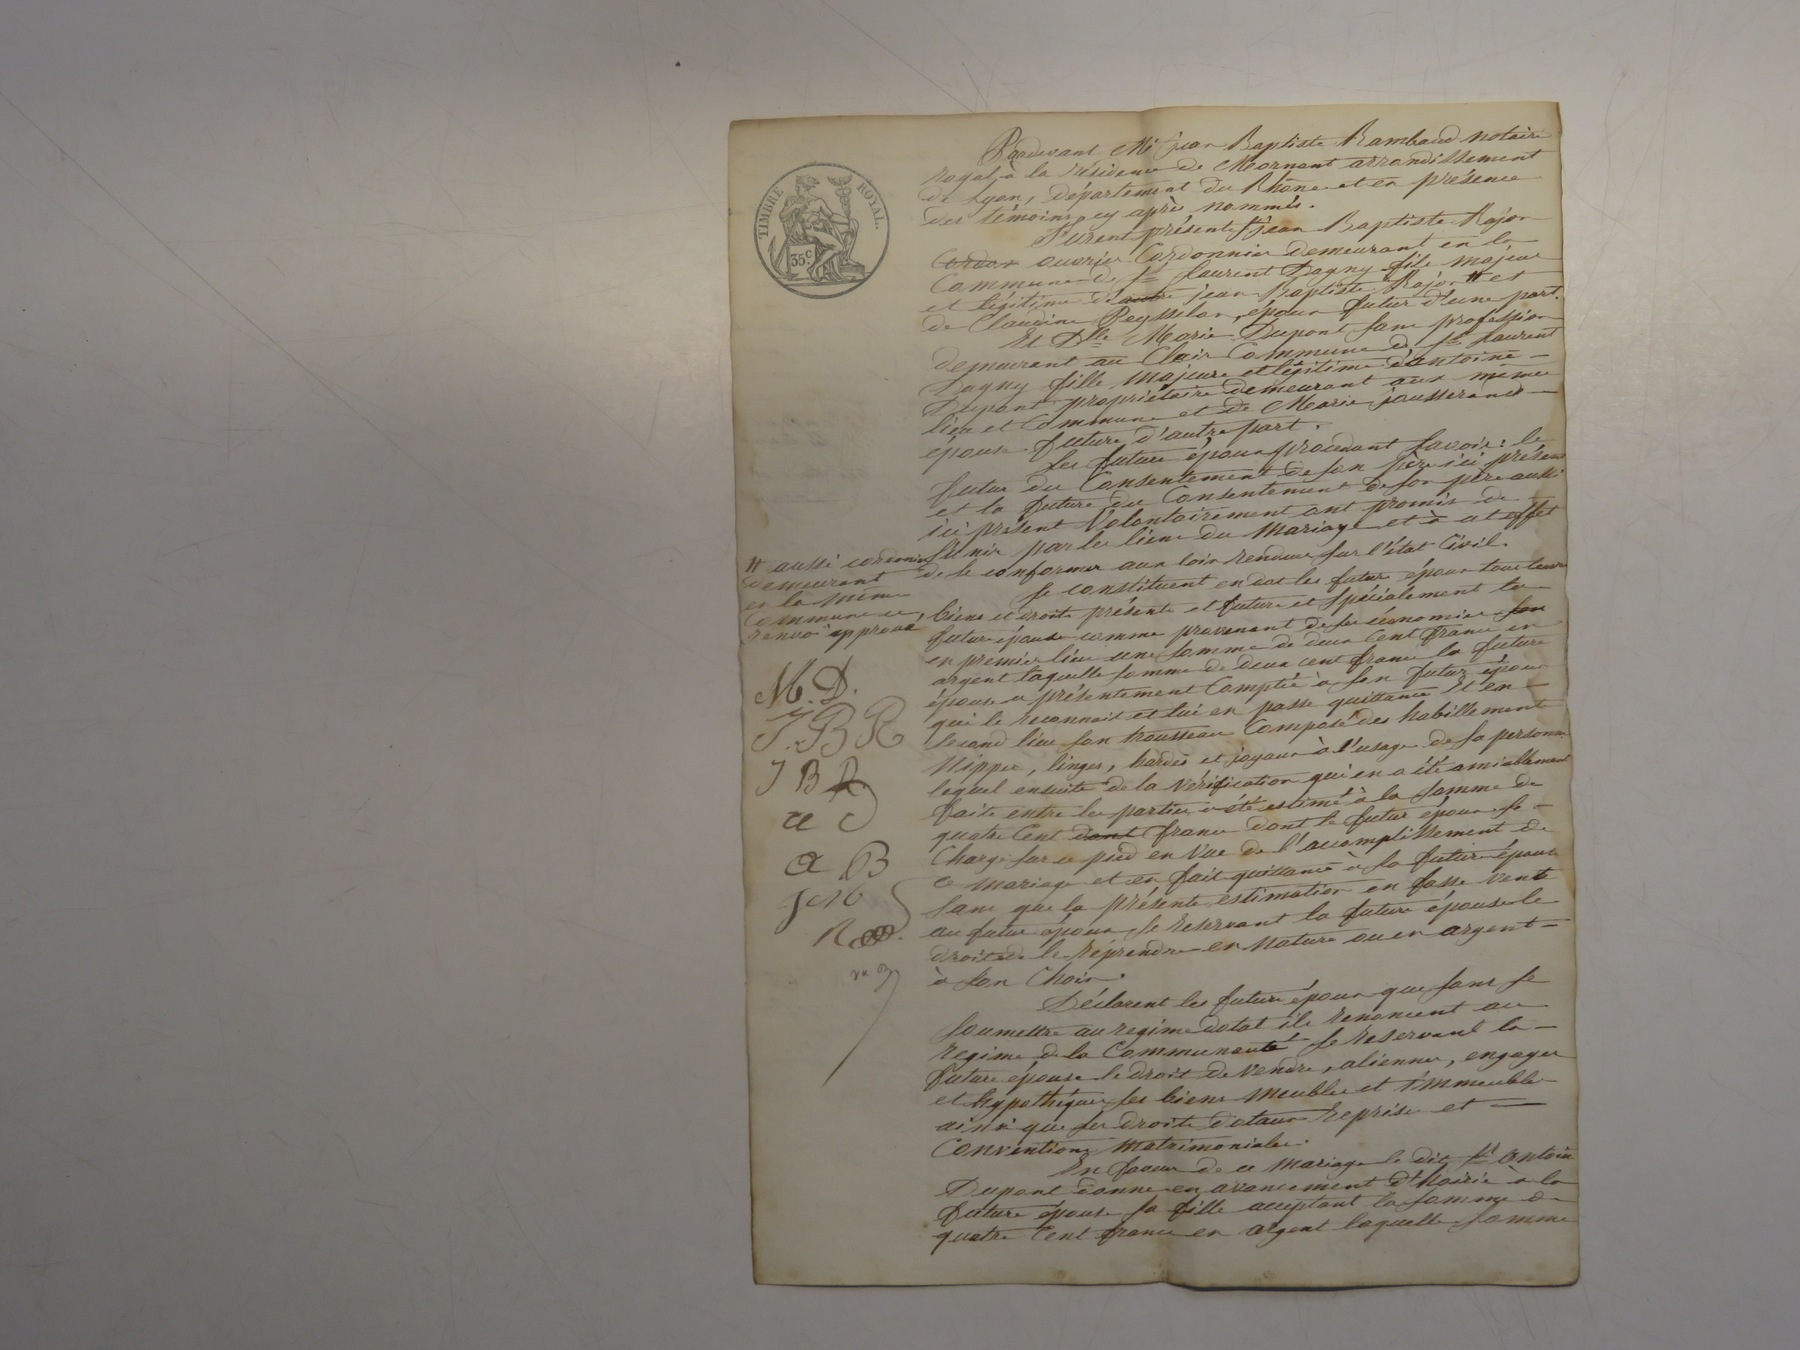 TIMBRE ROYAL.
35 c.
Pardevant Me jean Baptiste Rambaud notaire
royal à la résidence de Mornant arrondissement
de Lyon, département du Rhône et en présence
des témoins cy après nommés.
Furent présents sr jean Baptiste Rajon
ouvrier Cordonnier demeurant en la
Commune de St Laurent Dagny fils majeur
et légitime d'autre jean Baptiste Rajon # et
de Claudine Peysselon, époux futur d'une part.
Et Dlle Marie Dupont sans profession
demeurant au Clair Commune de St Laurent
Dagny fille majeure et légitime d'antoine
Dupont propriétaire demeurant aux mêmes
lieu et Commune et de Marie jousserand
épouse future d'autre part.
Les futurs époux procédant savoir: le
futur du Consentement de son père ici présent
et la future du Consentement de son père aussi
ici présent Volontairement ont promis de
S'unir par les liens du Mariage et à cet effet
de se conformer aux loix rendues sur l'état Civil.
Se constituent en dot les futurs époux tous leurs
biens et droits présents et futurs et spécialement la
future épouse comme provenant de ses économies
en premier lieu une somme de deux Cent francs en
argent laquelle somme de deux cent francs la future
épouse a présentement Comptée à son futur époux
qui le reconnait et lui en passe quittance Et en
second lieu son trousseau Composé des habillements
Nippes, linges, hardes et joyaux à l'usage de sa personne
lequel ensuite de la Vérification qui en a été amiablement
faite entre les parties a été estimé à la Somme de
quatre Cent dont francs dont le futur époux se
Charge sur ce pied en Vue de l'accomplissement de
ce mariage et en fait quittance à la future épouse
sans que la présente estimation en fasse Vente
au futur époux se reservant la future épouse le
droit de le réprendre en Nature ou en argent
à son Choix.
Déclarent les futurs époux que sans se
soumettre au regime dotal ils renoncent au
Regime de la Communauté se reservant la
future épouse le droit de Vendre, aliénner, engager
et hypothéquer ses biens Meubles et Immeubles
ainsi que ses droits dotaux Reprises et
Conventions Matrimoniales.
En faveur de ce Mariage le dit sr Antoine
Dupont donne en avancement d'hoirie à la
future épouse sa fille acceptant la somme de
quatre Cent francs en argent laquelle somme
# aussi cordonnier
demeurant
en la même
Commune ce
renvoi approuvé
M. D.
J. B R
J B R
a D
a B